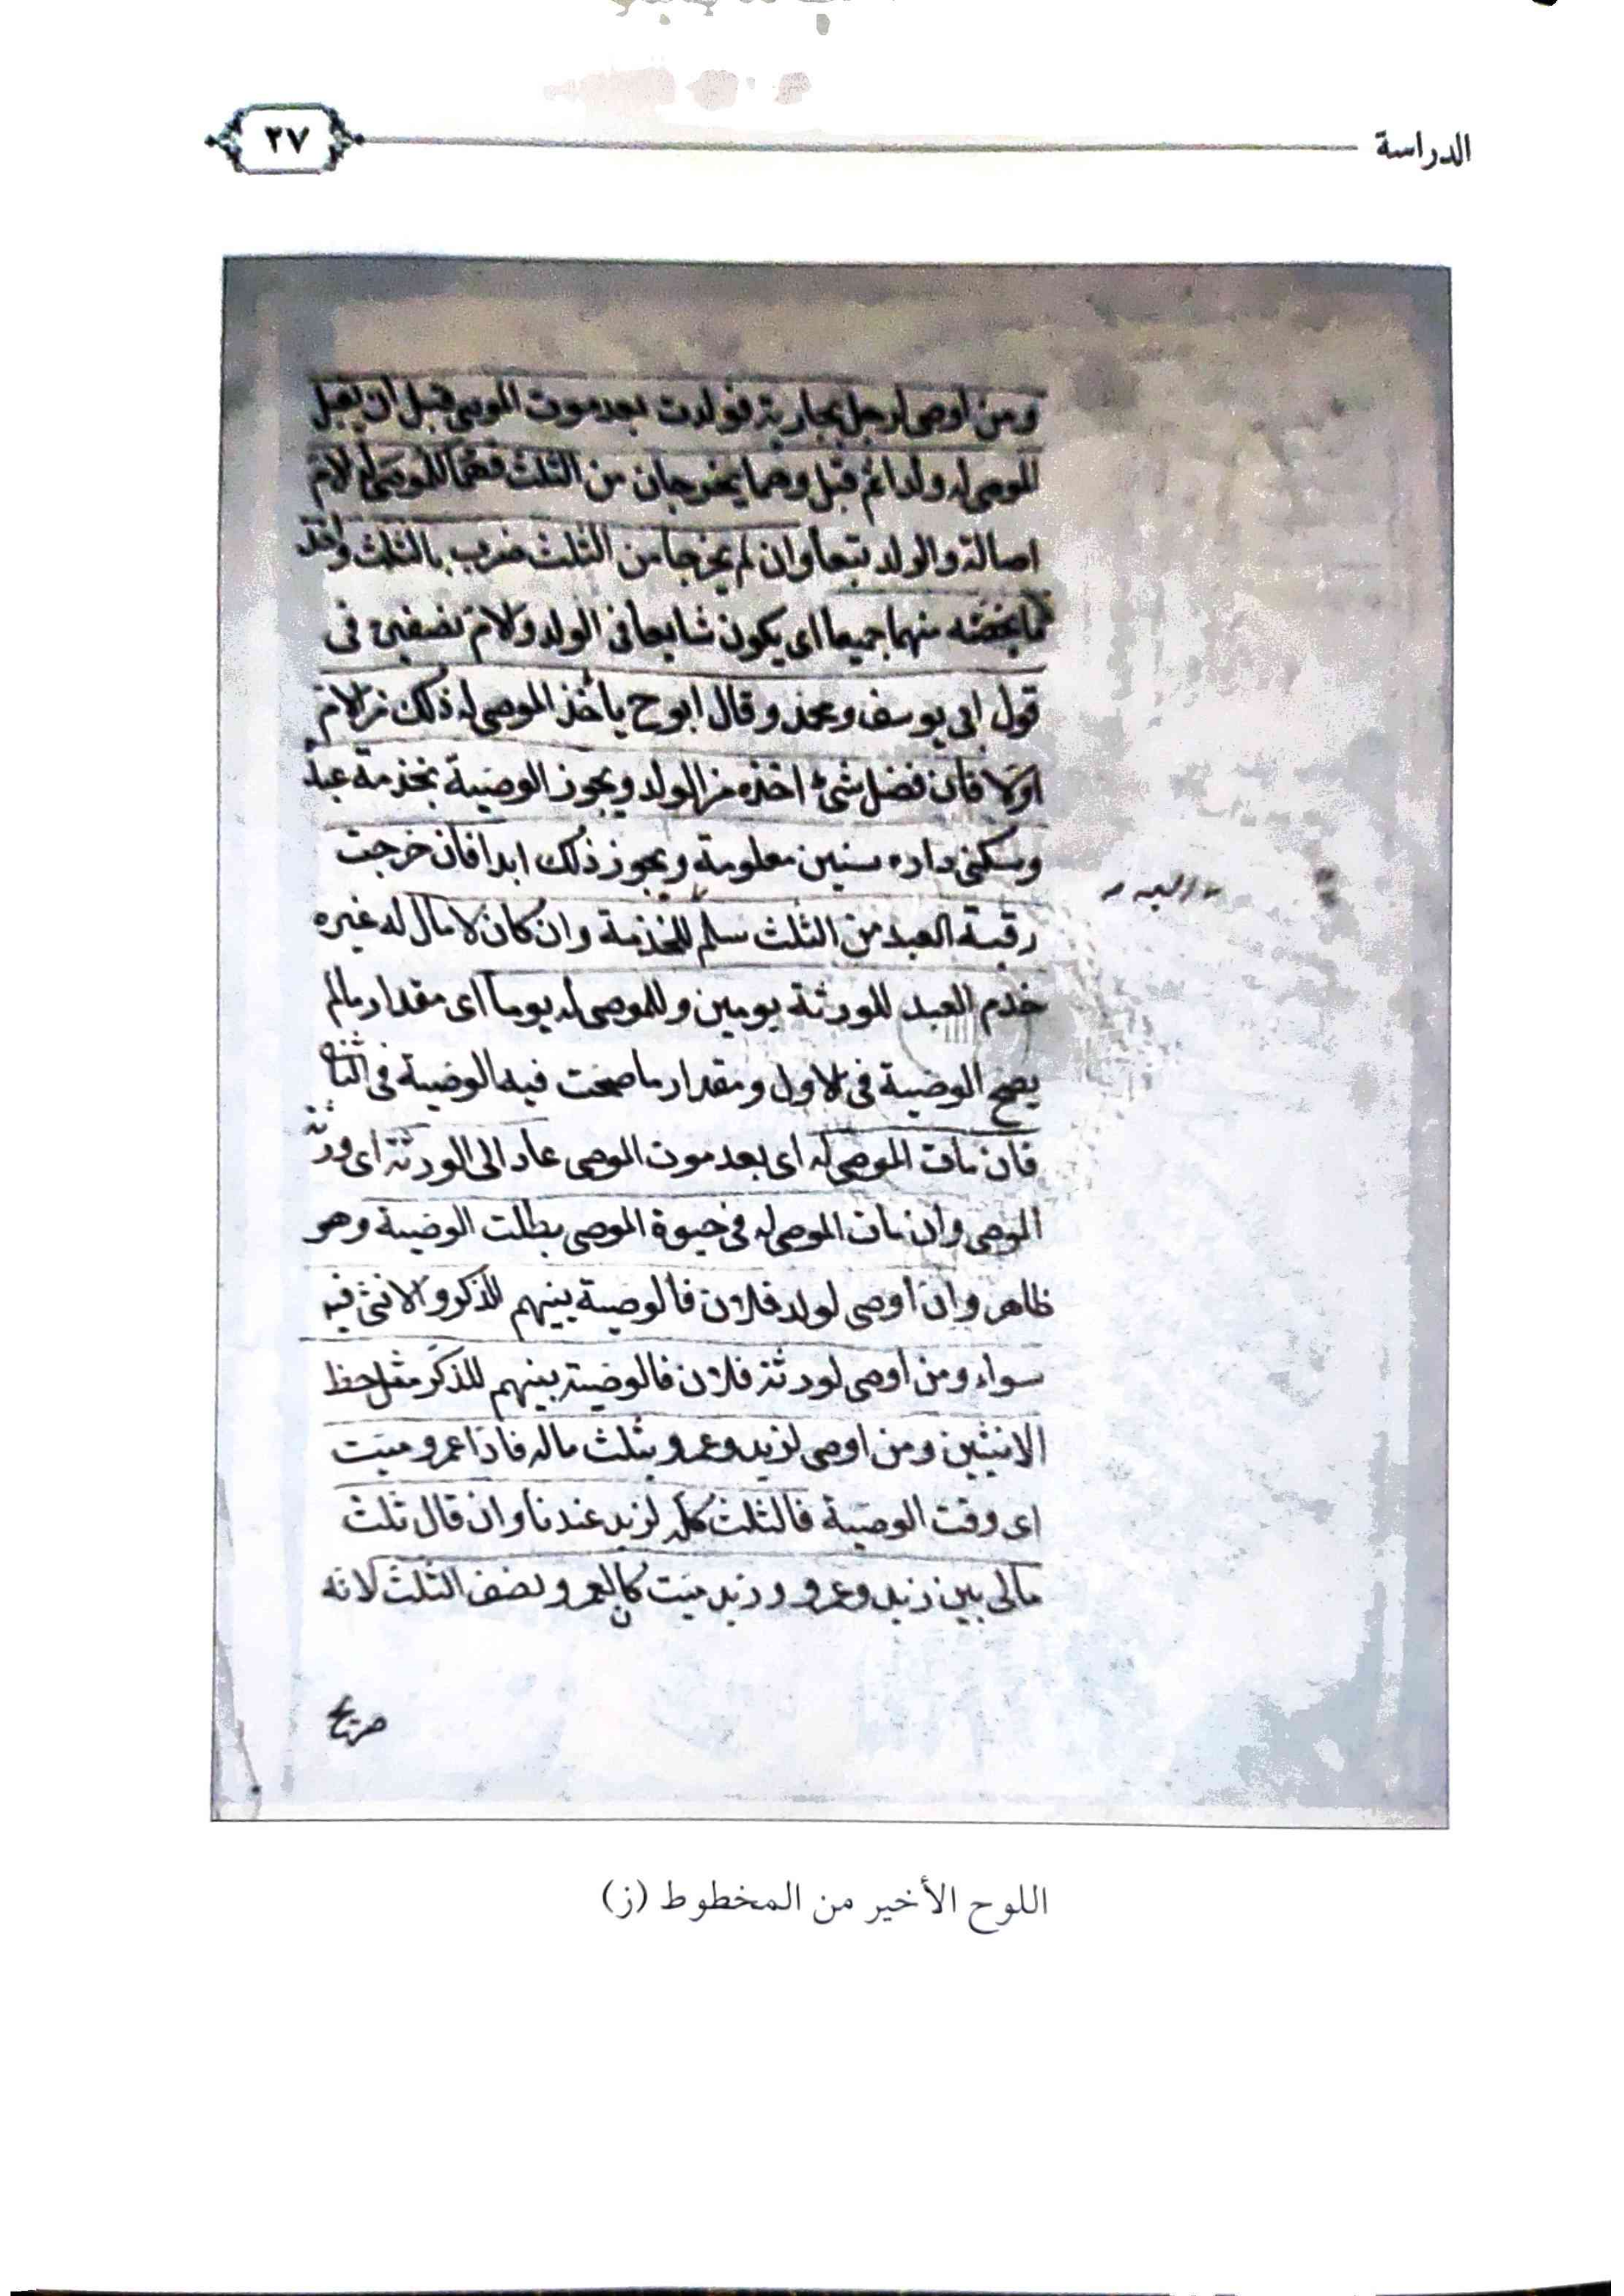 الدراسة
٢٧
ومن اوصى لرجل بجارية فولدت بعد موت الموصى قبل ان يقبل
الموصى له ولدا ثم قبل وهما يخرجان من الثلث فهما للموصى له لام
اصالة والولد تبعا وان لم يخرجا من الثلث ضرب بالثلث واخذ
ما يخصه منهما جميعا اى يكون شايعا فى الولد ولام نصفين فى
قول ابى يوسف ومحمد وقال ابوح يأخذ الموصى له ذلك من لام
اولا فان فضل شئ اخذه من الولد ويجوز الوصية بخدمة عبد
وسكنى داره سنين معلومة ويجوز ذلك ابدا فان خرجت
رقبة العبد من الثلث سلم للخدمة وان كان لا مال له غيره
خدم العبد للورثة يومين وللموصى له يوما اى مقدار ما لم
يصح الوصية فى لاول ومقدار ما صحت فيه الوصية فى
فان مات الموصى له اى بعد موت الموصى عاد الى الورثة اى ورثة
الموصى وان مات الموصى له فى حيوة الموصى بطلت الوصية وهو
ظاهر وان اوصى لولد فلان فالوصية بينهم للذكر والانثى فيه
سواء ومن اوصى لورثة فلان فالوصية بينهم للذكر مثل حظ
الانثيين ومن اوصى لزيد وعمرو بثلث ماله فاذا عمرو ميت
اى وقت الوصية فالثلث كله لزيد عندنا وان قال ثلث
مالى بين زيد وعمرو وزيد ميت كان لعمرو نصف الثلث لانه
صريح
اللوح الأخير من المخطوط (ز)